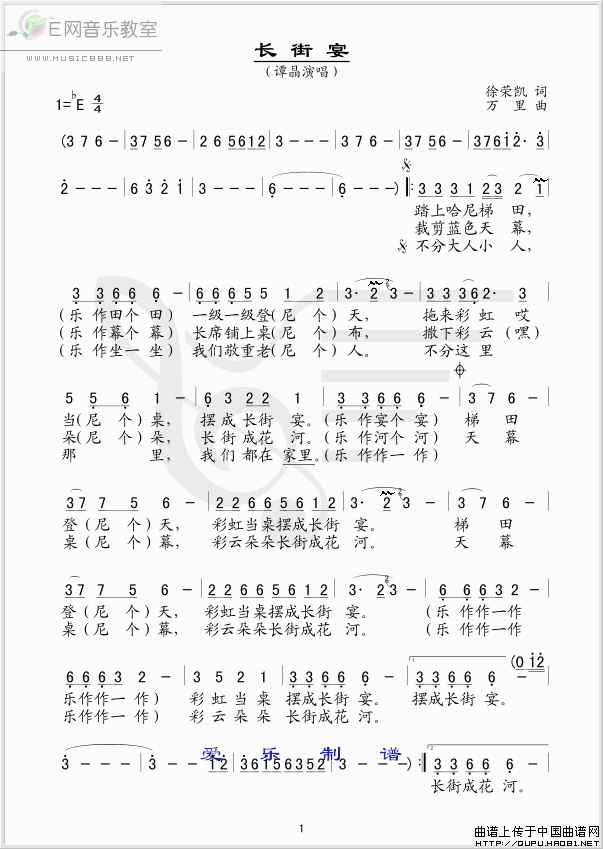 E网音乐教室
www.MUSIC888.NET
长 街 宴
（谭晶演唱）
1=♭E 4/4
徐荣凯 词
万 里 曲
(3 7 6 - | 3756 - | 26 5612 | 3 - - - | 3 7 6 - | 3756 - | 3761 2· 3 |
2 - - - | 6 3 2 1 | 3 - - - | 6 - - - | 6 - - - ) |: 3 3 3 1 23 2 1 |
踏上哈尼梯 田，
裁剪蓝色天 幕，
不分大人小 人，
3 3 6 6 6 - | 6 6 6 5 5 1 2 | 3· 2 3 | 3 3 3 6 2· 3 |
（乐 作田个 田） 一级一级登（尼 个）天， 拖来彩 虹 哎
（乐 作幕个 幕） 长席铺上桌（尼 个）布， 撒下彩 云（嘿）
（乐 作坐一 坐） 我们敬重老（尼 个）人。 不分这 里
5 5 6 1 - | 6 3 2 2 1 - | 3 3 6 6 6 - | 3 7 6 - |
当（尼 个）桌， 摆 成长街 宴。（乐 作宴个 宴） 梯 田
朵（尼 个）朵， 长 街成花 河。（乐 作河个 河） 天 幕
那 里， 我 们都在 家里。（乐 作作一 作）
37 7 5 6 - | 2 2 6 6 5 6 1 2 | 3· 2 3 - | 3 7 6 - |
登（尼 个）天， 彩虹当桌摆成长街 宴。 梯 田
桌（尼 个）幕， 彩云朵朵长街成花 河。 天 幕
37 7 5 6 - | 2 2 6 6 5 6 1 2 | 3· 2 3 - | 6 6 6 3 2 - |
登（尼 个）天， 彩虹当桌摆成长街 宴。 （乐 作作一作
桌（尼 个）幕， 彩云朵朵长街成花 河。 （乐 作作一作
6 6 6 3 2 - | 3 5 2 1 | 3 3 6 6 6 - | 1. 3 3 6 6 6 - (0 12 |
乐作作一 作） 彩 虹 当 桌 摆成长街 宴。 摆成长街 宴。
乐作作一 作） 彩 云 朵 朵 长街成花 河。
爱 乐 制 谱
3 - - - | 3 - - 12 | 36156352 | 3 - - - ) :| 2. 3 3 6 6 6 - |
长街成花 河。
1
曲谱上传于中国曲谱网
HTTP://QUPU.HAO81.NET